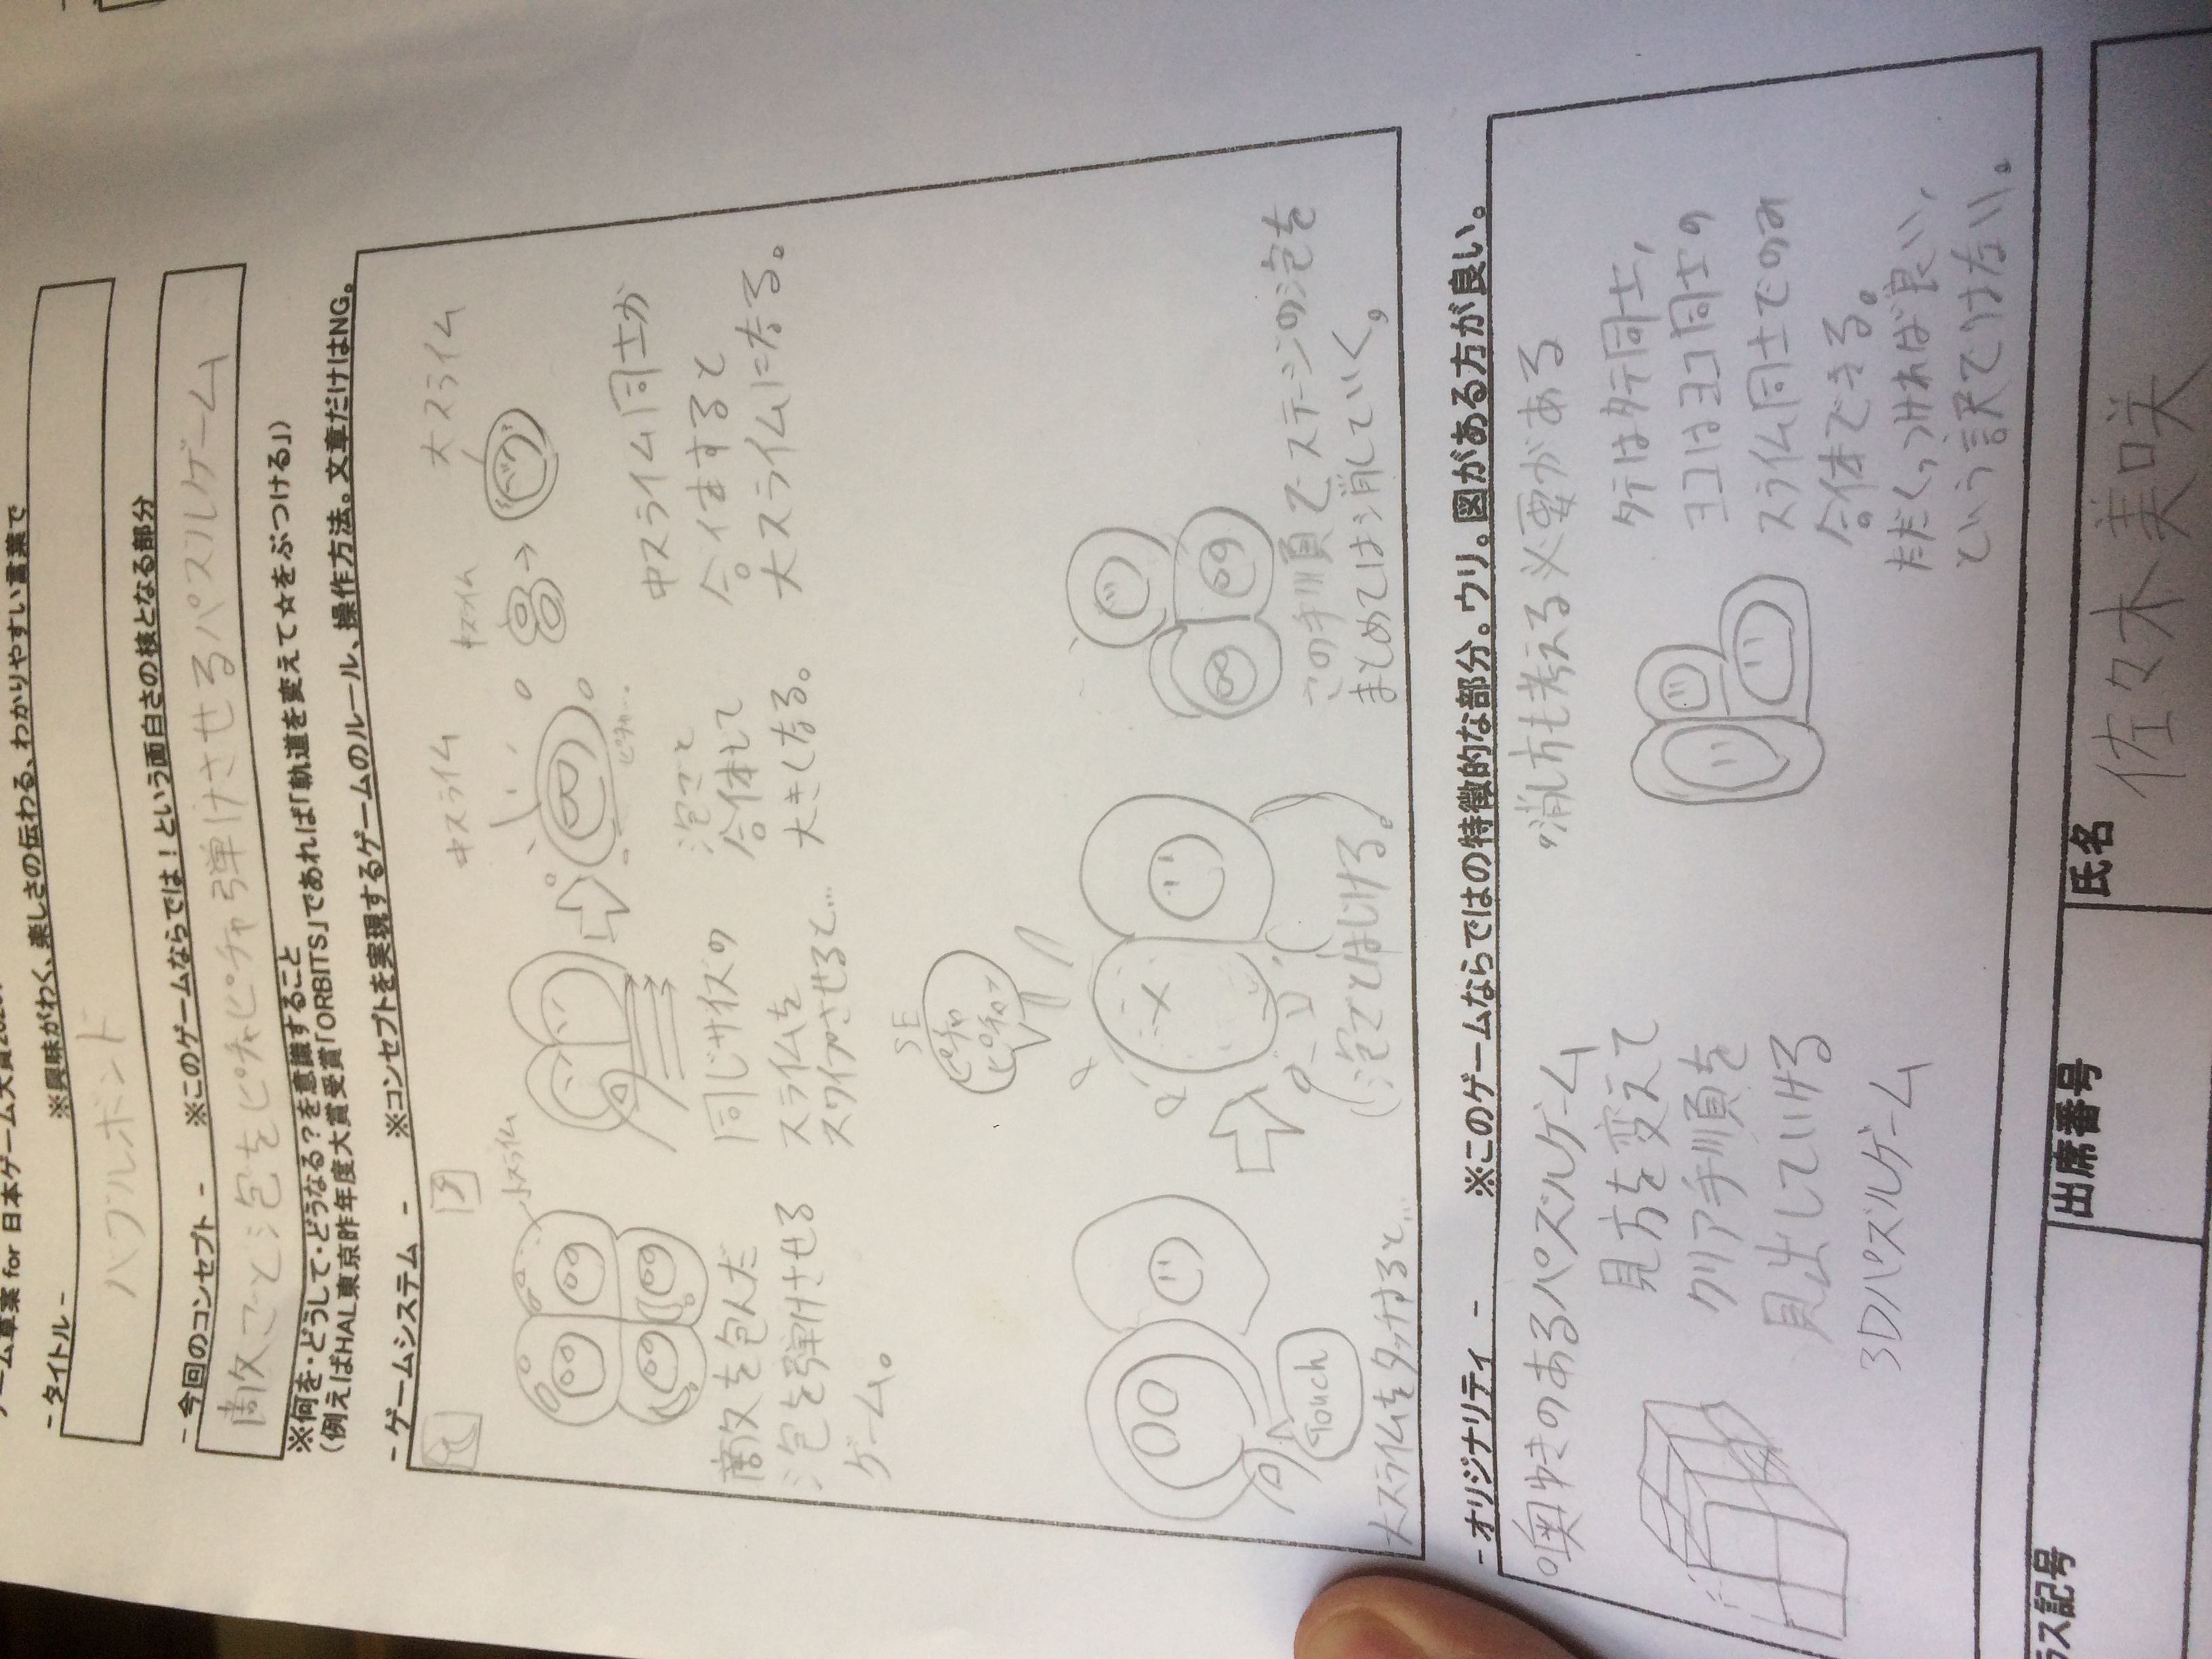 ゲーム草案 for 日本ゲーム大賞
- タイトル -　※興味がわく、楽しさの伝わる、わかりやすい言葉で
バブルボンド
- 今回のコンセプト -　※このゲームならでは！という面白さの核となる部分
敵ごと泡をピチャピチャ弾けさせるパズルゲーム
※何を・どうして・どうなる？を意識すること
（例えばHAL東京昨年度大賞受賞「ORBITS」であれば「軌道を変えて☆をぶつける」）
- ゲームシステム -　※コンセプトを実現するゲームのルール、操作方法。文章だけはNG。
小スライム
中スライム
中スライム
大スライム
ピチャ…
敵を包んだ
泡を弾けさせる
ゲーム。
同じサイズの
スライムを
スワイプさせると…
泡ごと
合体して
大きくなる。
中スライム同士が
合体すると
大スライムになる。
SE
ピチャ
ピチャン
Touch
大スライムをタッチすると…
泡ごとはじける。
この手順でステージの泡を
まとめては消していく。
- オリジナリティ -　※このゲームならではの特徴的な部分。ウリ。図がある方が良い。
○奥ゆきのあるパズルゲーム
見方を変えて
クリア手順を
見出していける
3Dパズルゲーム
○消し方も考える必要がある
タテはタテ同士,
ヨコはヨコ同士の
スライム同士でのみ
合体できる。
ただくっつければ良い,
という訳ではない。
ラス記号
出席番号
氏名
佐々木美咲